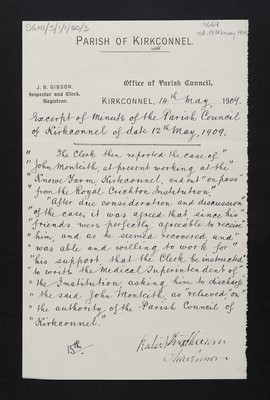 DGH1/5/1/1/60/3
PARISH OF KIRKCONNEL.
Office of Parish Council,
J. B. GIBSON,
Inspector and Clerk.
Registrar.
KIRKCONNEL, 14th May, 1909.
Excerpt of Minute of the Parish Council
of Kirkconnel of date 12th May, 1909.
" The Clerk then reported the case of "
" John Monteith, at present working at the "
" Knowe Farm, Kirkconnel, and out "on pass"
" from the Royal Crichton Institution."
" After due consideration and discussion "
" of the case, it was agreed that since his "
" friends were perfectly agreeable to receive
" him, and as he seemed recovered, and "
" was able and willing to work for "
" his support, that the Clerk be instructed "
" to write the Medical Superintendent of "
" the Institution, asking him to discharge
" the said John Monteith, as "relieved, on "
" the authority of the Parish Council of
" Kirkconnel."
Chairman